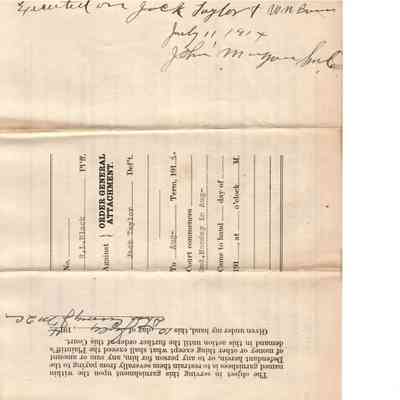 Executed on Jack Taylor & W.N.
July 11 1914
John Morgan
No.
R.L. Black Pl'ff.
Against } ORDER GENERAL ATTACHMENT.
Jack Taylor Def't.
To Aug- Term, 191
Court commences
2nd. Monday in Aug-
Came to hand day of
191 at o'clock M.
The object in serving this garnishment upon the within
named garnishees is to restrain them severally from paying to the
Defendant herein, or to any person for him, any sum or amount
of money or other thing except what shall exceed the Plaintiff's
demand in this action until the further ordered of this Court.
Given under my hand, this, 10 day of July 191